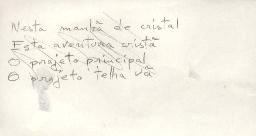 Nesta manhã de cristal
Esta aventura cristã
O projeto principal
O projeto telha vã